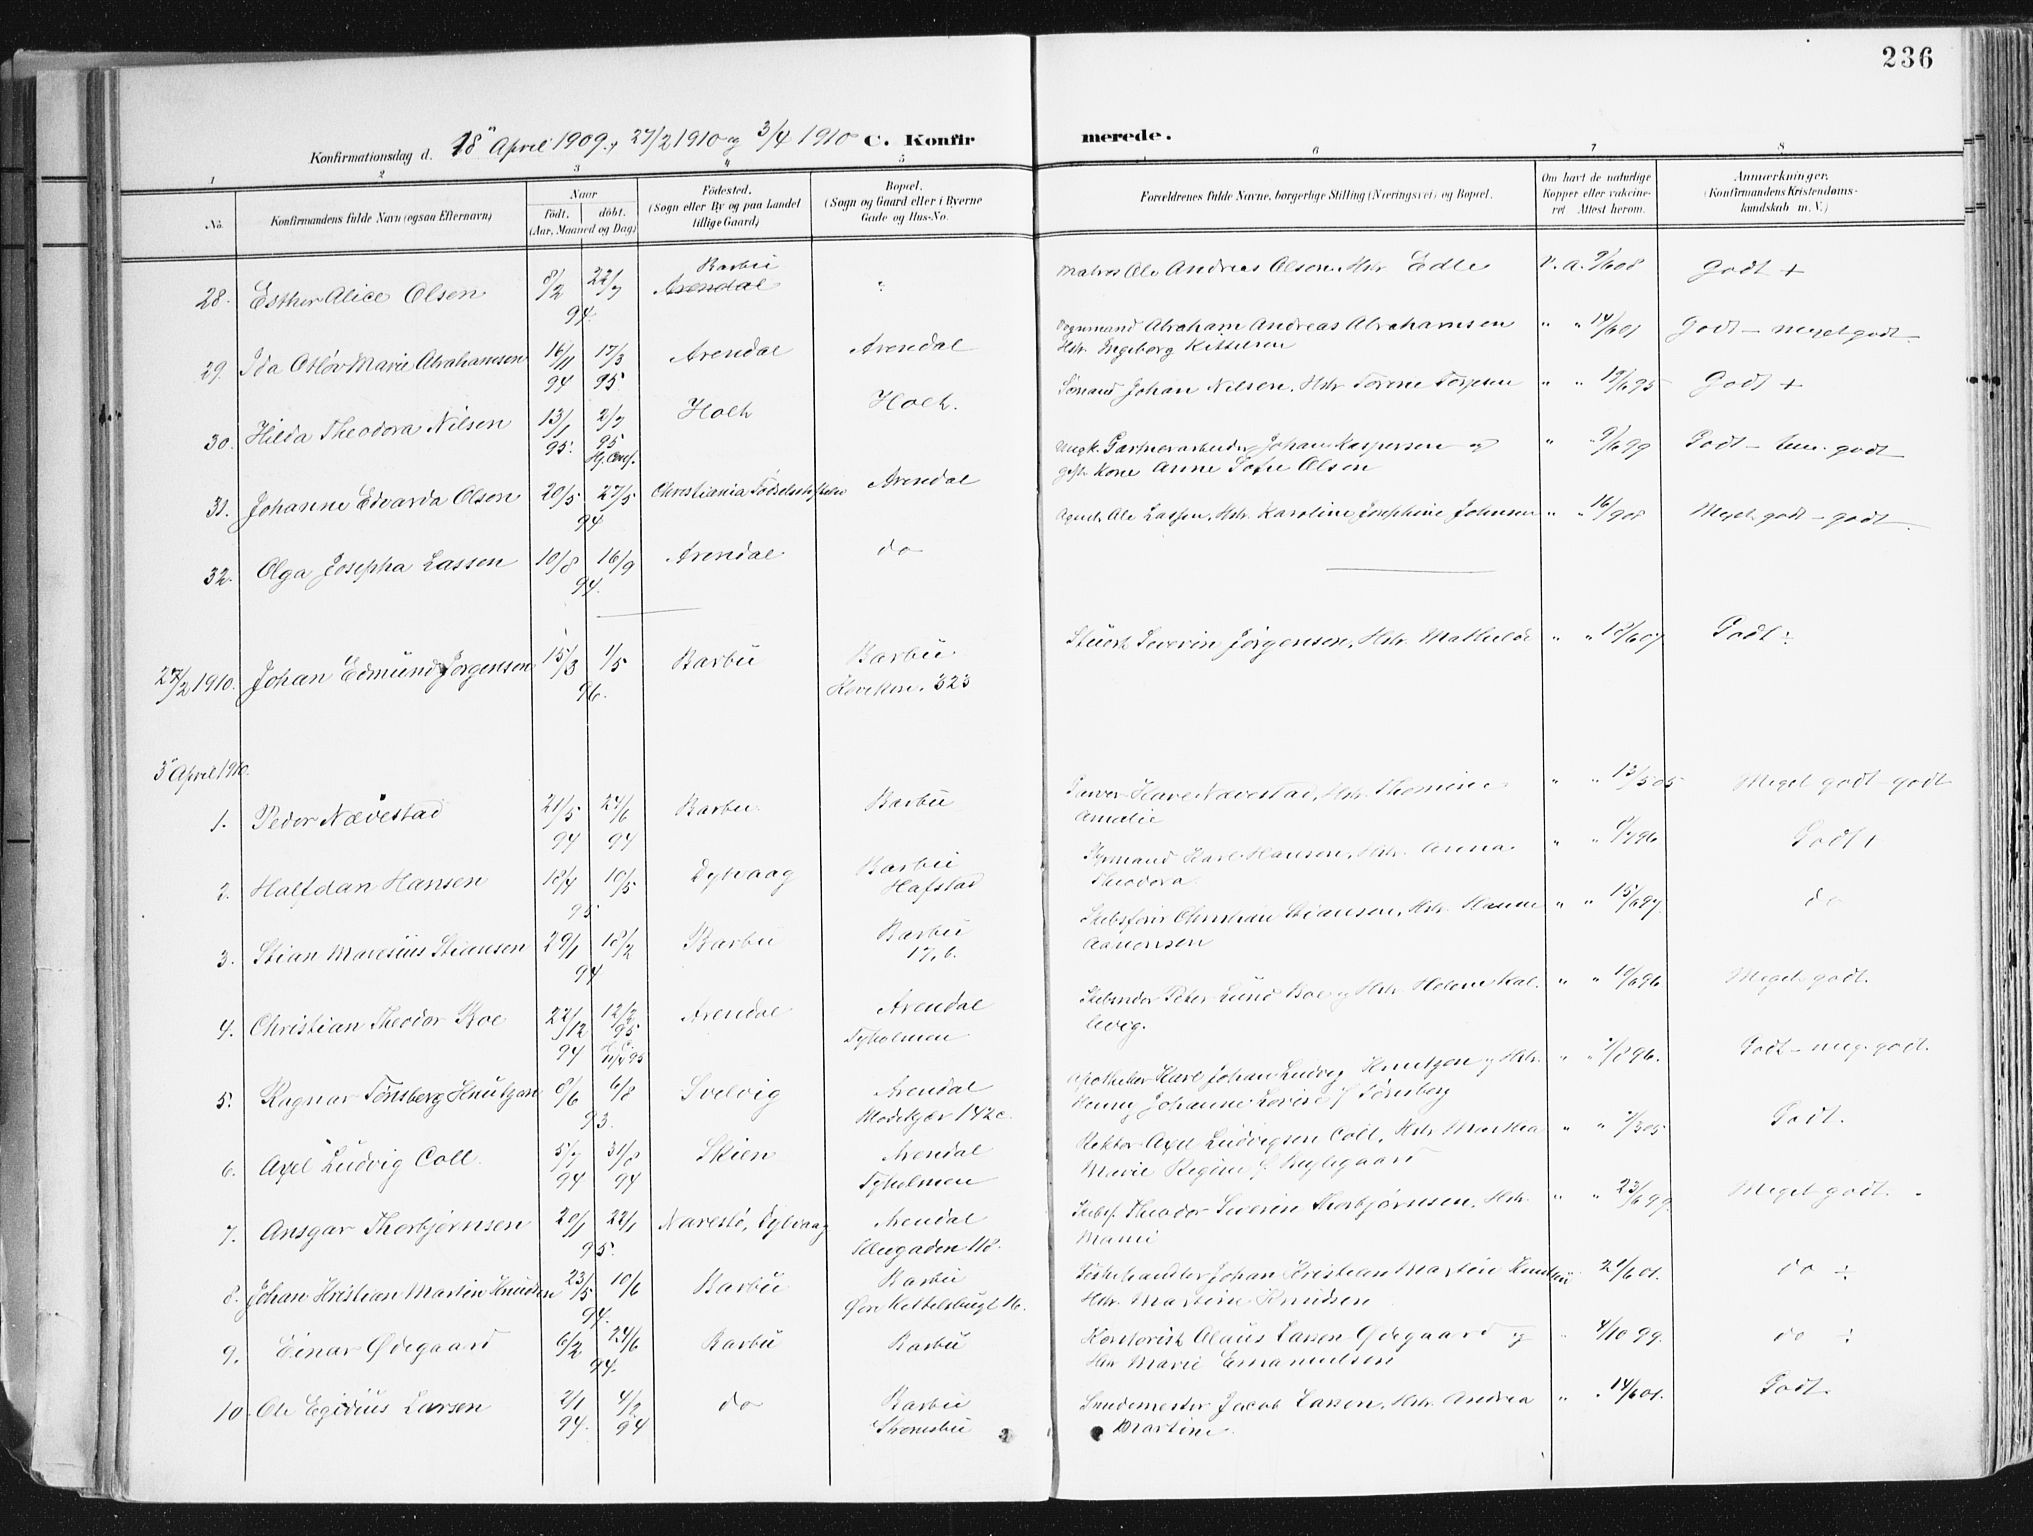 236
Konfirmationsdag d. 18 April 1909, 27/2 1910 og 3/4 1910 C. Konfirmerede.
1 2 3 4 5 6 7 8
No. Konfirmandens fulde Navn (ogsaa Efternavn) Naar født. døbt. (Aar, Maaned og Dag) Fødested. (Sogn eller By og paa Landet tillige Gaard) Bopæl. (Sogn og Gaard eller i Byerne Gade og Hus-No. Forældrenes fulde Navne, borgerlige Stilling (Næringsvei) og Bopæl. Om havt de naturlige Kopper eller vaccineret Attest herom. Anmærkninger. (Konfirmandens Kristendomskundskab m. V.)
28. Esther Alice Olsen 8/2 22/7 94. Barbu Arendal " Ole Andreas Olsen, Hstr. Edle v. a. 9/6 08 Godt +
29. Ida Otlov Marie Abrahamsen 16/11 94 17/3 95. Arendal Arendal Abraham Andreas Abrahamsen
Hstr. Ingeborg Kittilsen " " 14/6 01 Godt - meget godt
30. Hilda Theodora Nilsen 13/1 95. 2/7 95 Holt Holt. Sømand Johan Nilsen, Hstr. " " 19/6 95 Godt +
31. Johanne Edvarda Olsen 20/5 27/5 94 Christiania Fødselsstiftelse Arendal Gartnerarbeider Johan Kaspersen og
Kone Anne Sofie Olsen " " 9/6 99 Godt - godt
32. Olga Josepha Lassen 10/8 16/9 94. Arendal do Agent Ole Lassen, Hstr. Karoline Josephine Johnsen " " 16/9 08 Meget godt - godt
27/2 1910. Johan Edmund Jørgensen 15/3 1/5 96. Barbu Barbu. 323 Severin Jørgensen, Hstr. Mathilde " " 18/6 07 Godt ÷
3 April 1910.
1. Peder Nævestad 21/5 94 24/6 94 Barbu Barbu Nævestad, Hstr. Thomine
Amalie " " 13/5 05 Meget godt - godt
2. Halfdan Hansen 18/4 10/5 95 Dybvaag Barbu
Hafstad Karl Hansen, Hstr. Anna
Theodora. " " Godt +
3. Stian Maresius Stiansen 29/1 18/2 94 Barbu Barbu
17, b. Skibsfører Christian Stiansen, Hstr. Hanne
Aanonsen " " 15/6 97. do
4. Christian Theodor Boe 22/12 94 12/2 95 Arendal Arendal
Tyholmen Peter Lund Boe og Hstr. Helene Kallevig. " " 19/6 96 Meget godt.
5. Ragnar Tønsberg Knutzen 8/6 6/8 93. Svelvig Arendal
142 c. Apotheker Karl Johan Ludvig Knutzen og Hstr.
Henny Johanne Lovise f Tønsberg " " 7/8 96. Godt - meg. godt.
6. Axel Ludvig Coll. 5/7 94 31/8 94 Skien Arendal
Tyholmen Rektor Axel Ludvigsen Coll, Hstr. Martha
Marie Regine f " " Godt.
7. Ansgar Thorbjørnsen 20/1 22/1 95. Narestø, Dybvaag Arendal
118. Theodor Severin Thorbjørnsen, Hstr.
" " 23/6 99. Meget godt.
8. Johan Kristian Martin Knudsen 23/5 10/6 94. Barbu Barbu
Øvre Kittelsbugt 16. Johan Kristian Martin Knudsen
Hstr. Martine Knudsen 21/6 01. do ÷
9. Einar Ødegaard 6/2 24/6 94. Barbu Barbu Kontorist Olaus Larsen Ødegaard og
Hstr Marie Emanuelsen " 4/10 99. do ÷
10. Ole Egidius Larsen 2/1 94. 4/2 94 do Barbu
Strømsbu Jacob Larsen, Hstr. Andrea
Martine. " " 14/6 01. Godt.